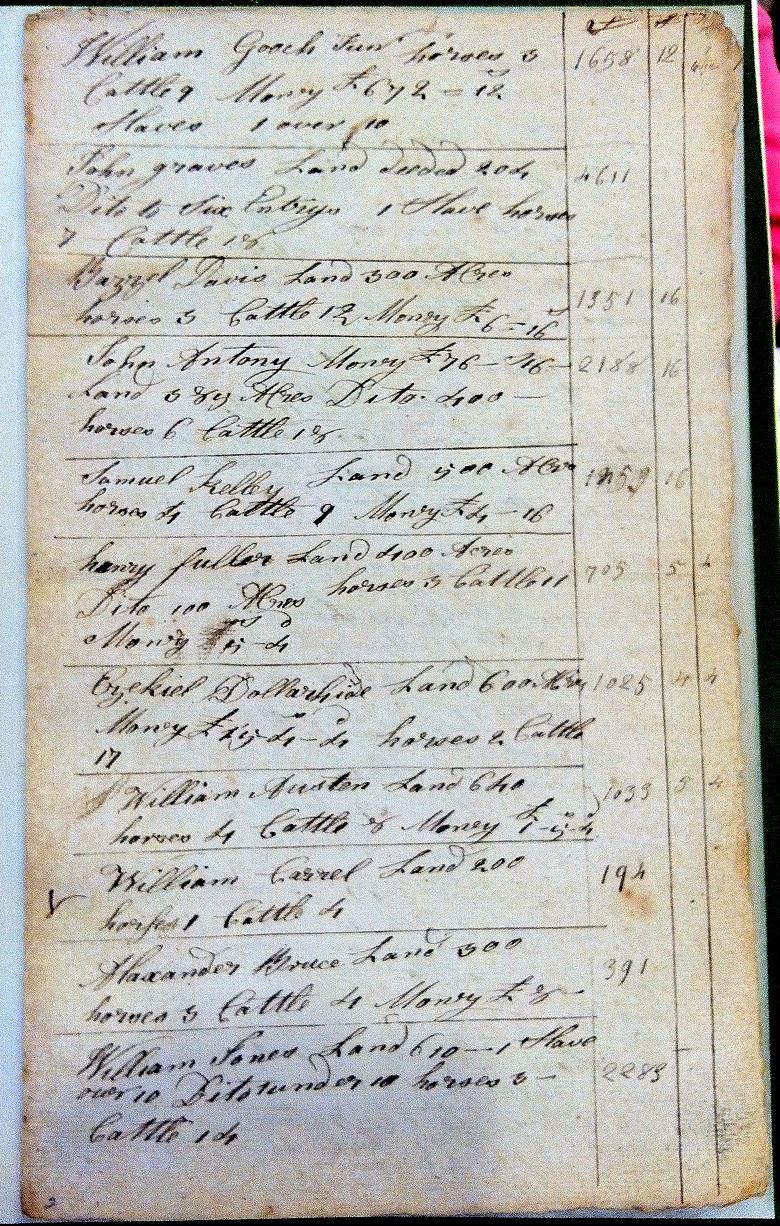 £ s
William Gooch Junr horses 3 1658 12
Cattle 9 Money £ 672 = 12
Slaves 1 over 10
John graves Land deeded 204 4611
Dito to Six Entrys 1 Slave horses
7 Cattle 18
Bazzel Davis Land 300 Acres
horses 3 Cattle 12 Money £ 6 = 16 1351 16
John Antony Money £ 76 — 16 — 2188 16
Land 389 Acres Dito 400 —
horses 6 Cattle 18
Samuel Kelley Land 500 Acre 16
horses 4 Cattle 9 Money £ 4 — 16
henry fuller Land 400 Acres
Dito 100 Acres horses 3 Cattle 11 705 5 4
Money 5 - 4
Ezekiel Dollarhide Land 600 Acres 1025 4 4
Money £ 4 - 4 horses 2 Cattle
17
William Austen Land 640 1033 5 4
horses 4 Cattle 8 Money £ 1 - 5 - 4
William Carrel Land 200 194
horses 1 Cattle 4
Alaxander Bruce Land 300 391
horses 3 Cattle 4 Money £ 8 —
William Jones Land 610 — 1 Slave
over 10 Dito 1 under 10 horses 3 — 2283
Cattle 14